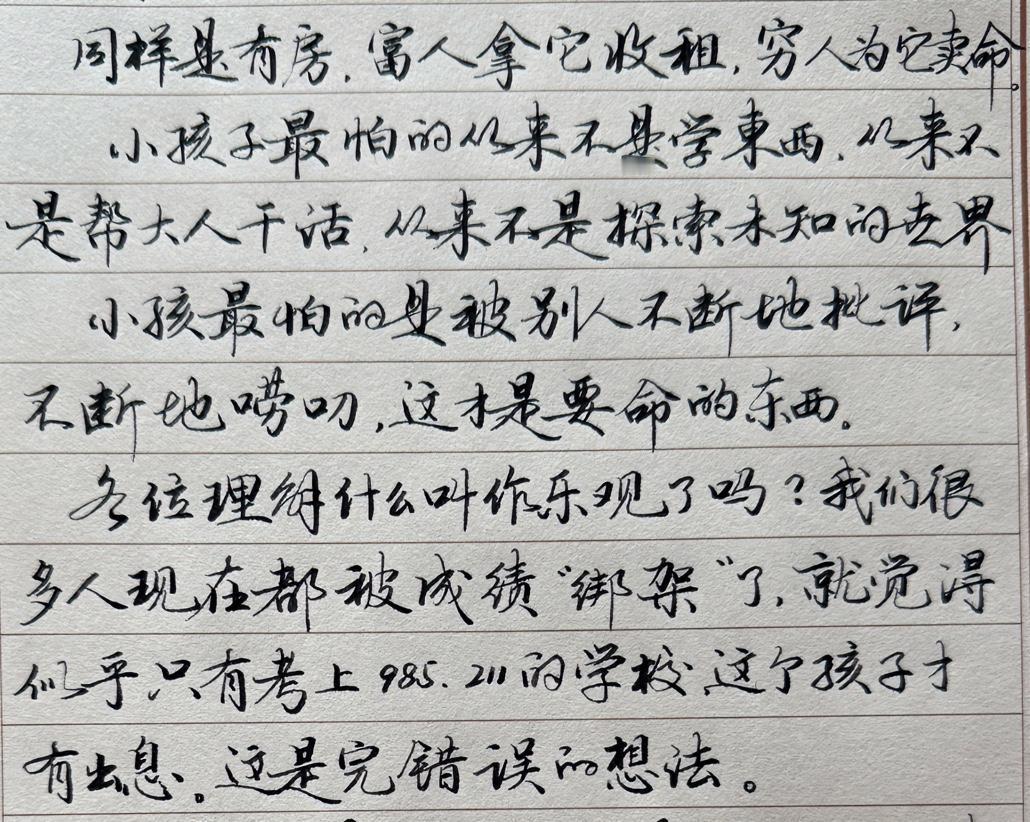 同样是有房，富人拿它收租，穷人为它卖命。
小孩子最怕的从来不是学東西，从来不
是帮大人干活，从来不是探索未知的世界
小孩最怕的是被别人不断地批评，
不断地唠叨，这才是要命的东西。
各位理解什么叫作乐观了吗？我们很
多人现在都被成绩“绑架”了，就觉得
似乎只有考上985.211的学校，这个孩子才
有出息。这是完错误的想法。